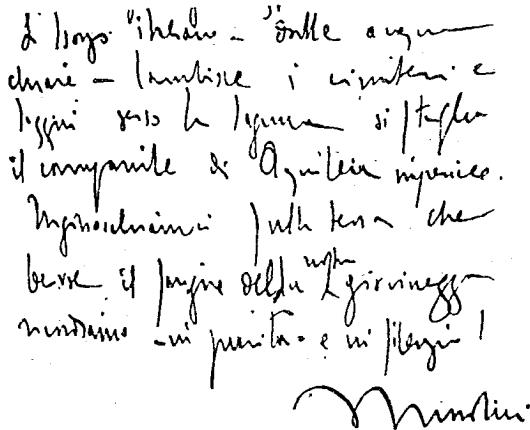 L'Isonzo "italiano — dalle acque
chiare — lambisce i cimiteri e
laggiù verso la laguna si staglia
il campanile di Aquileia
Inginocchiamoci sulla terra che
bevve il sangue della nostra giovinezza
in purità - e in silenzio!
Mussolini